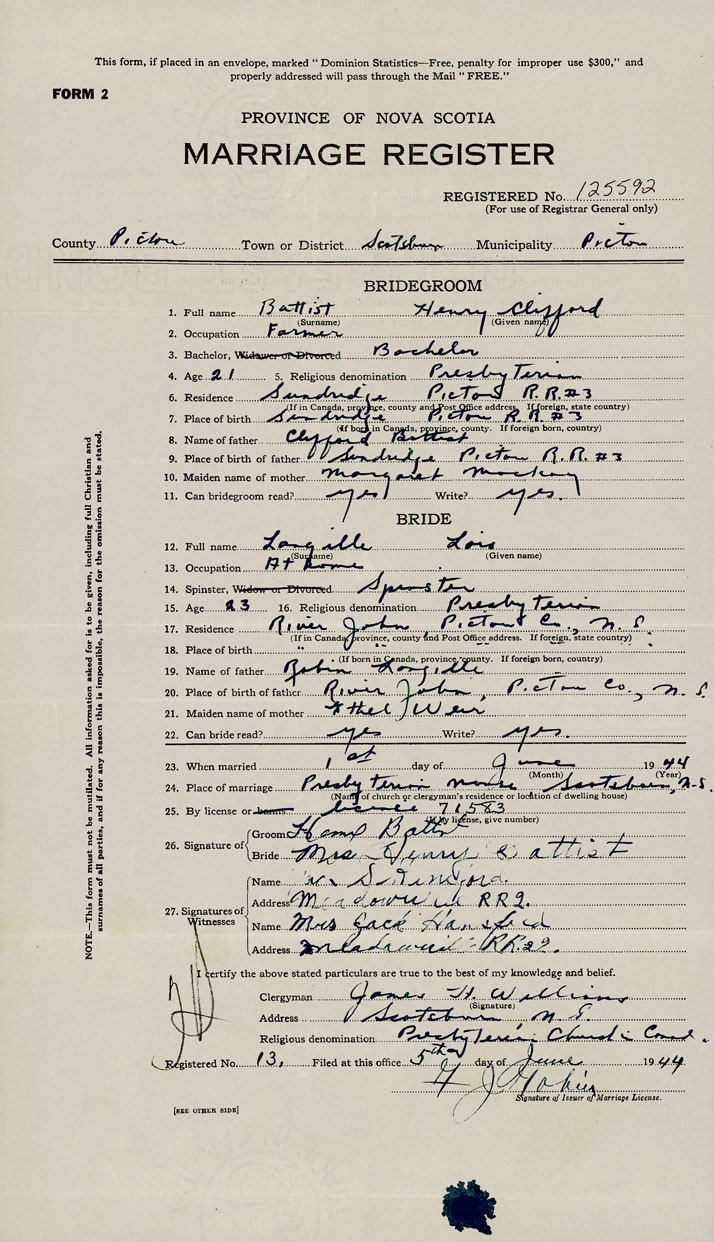 This form, if placed in an envelope, marked "Dominion Statistics—Free, penalty for improper use $300," and
properly addressed will pass through the Mail "FREE."
FORM 2
PROVINCE OF NOVA SCOTIA
MARRIAGE REGISTER
REGISTERED No. 125592
(For use of Registrar General only)
County Pictou Town or District Scotsburn Municipality Pictou
BRIDEGROOM
1. Full name Battist Henry Clifford
(Surname) (Given name)
2. Occupation Farmer
3. Bachelor, Widower or Divorced Bachelor
4. Age 21 5. Religious denomination Presbyterian
6. Residence Sundridge Pictou R.R.#3
(If in Canada, province, county and Post Office address. If foreign, state country)
7. Place of birth Sundridge Pictou R.R.#3
(If born in Canada, province, county. If foreign born, country)
8. Name of father Clifford Battist
9. Place of birth of father Sundridge Pictou R.R. #3
10. Maiden name of mother Margaret Mackay
11. Can bridegroom read? yes Write? yes.
BRIDE
12. Full name Langille Lois
(Surname) (Given name)
13. Occupation At home
14. Spinster, Widow or Divorced Spinster
15. Age 23 16. Religious denomination Presbyterian
17. Residence River John Pictou Co., N.S.
(If in Canada, province, county and Post Office address. If foreign, state country)
18. Place of birth " " " " "
(If born in Canada, province, county. If foreign born, country)
19. Name of father Robin Langille
20. Place of birth of father River John, Pictou Co., N.S.
21. Maiden name of mother Ethel Weir
22. Can bride read? yes Write? yes.
23. When married 1st day of June 1944
(Month) (Year)
24. Place of marriage Presbyterian manse Scotsburn, N.S.
(Name of church or clergyman's residence or location of dwelling house)
25. By license or banns licence 71583
(If by license, give number)
26. Signature of
Groom Battist
Bride Mrs Henry Battist
27. Signatures of Witnesses
Name
Address Meadowville RR2.
Name Mrs Jack Hansford
Address Meadowville RR2.
I certify the above stated particulars are true to the best of my knowledge and belief.
Clergyman James H. Williams
(Signature)
Address Scotsburn N.S.
Religious denomination Presbyterian Church in Canada.
Registered No. 13, Filed at this office 5th day of June 1944
Signature of Issuer of Marriage License.
[SEE OTHER SIDE]
NOTE.—This form must not be mutilated. All information asked for is to be given, including full Christian and
surnames of all parties, and if for any reason this is impossible, the reason for the omission must be stated.